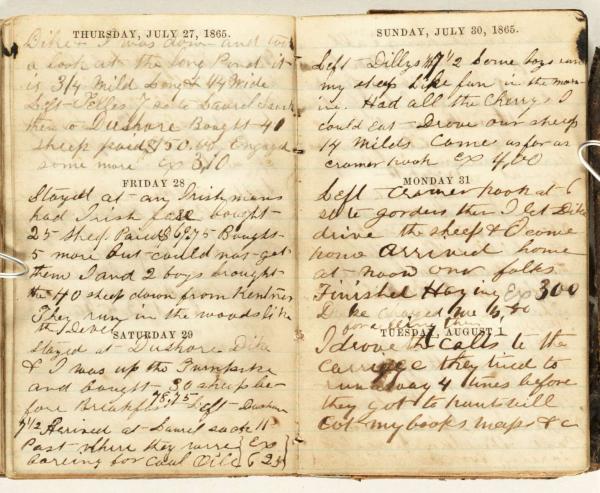 THURSDAY, JULY 27, 1865.
Dike & I was down and took
a look at the long Pond it
is 3/4 Mild Long & 1/4 Wide
Left 7 to Laurel
them to Dushore Bought 40
sheep paid $150.00 Engaged
some more Ex 3,10
FRIDAY 28
Stayed at an Irishmans
had Irish fare bought
25 sheep Paid $69,75 Bought
5 more but could not get
them I and 2 boys brought
the 40 sheep down from
They run in the woods like
the Devel
SATURDAY 29
Stayed at Dushore Dike
& I was up the Turnpike
and bought 30 sheep be
fore Breakfus 78,75 Left Dushore
7 1/2 Arived at Laurel 11
Past where they were Ex
boreing for Coal Oil 6 25
SUNDAY, JULY 30, 1865.
Left Dillys at 7 1/2 Some boys run
my sheep like fun in the morn
ing. Had all the Cherrys I
could eat Drove our sheep
14 Milds Come as far as
cramer nook Ex 4,00
MONDAY 31
Left Cramer nook at 6
to gorders then I let Dike
drive the sheep & I come
home arrived home
at noon our folks
Finished Haying Ex 300
Dike charged me 4,00
for them
TUESDAY, AUGUST 1
I drove the calls to the
carrige they tried to
run away 4 times before
they got to huntsvill
Got my books maps & c